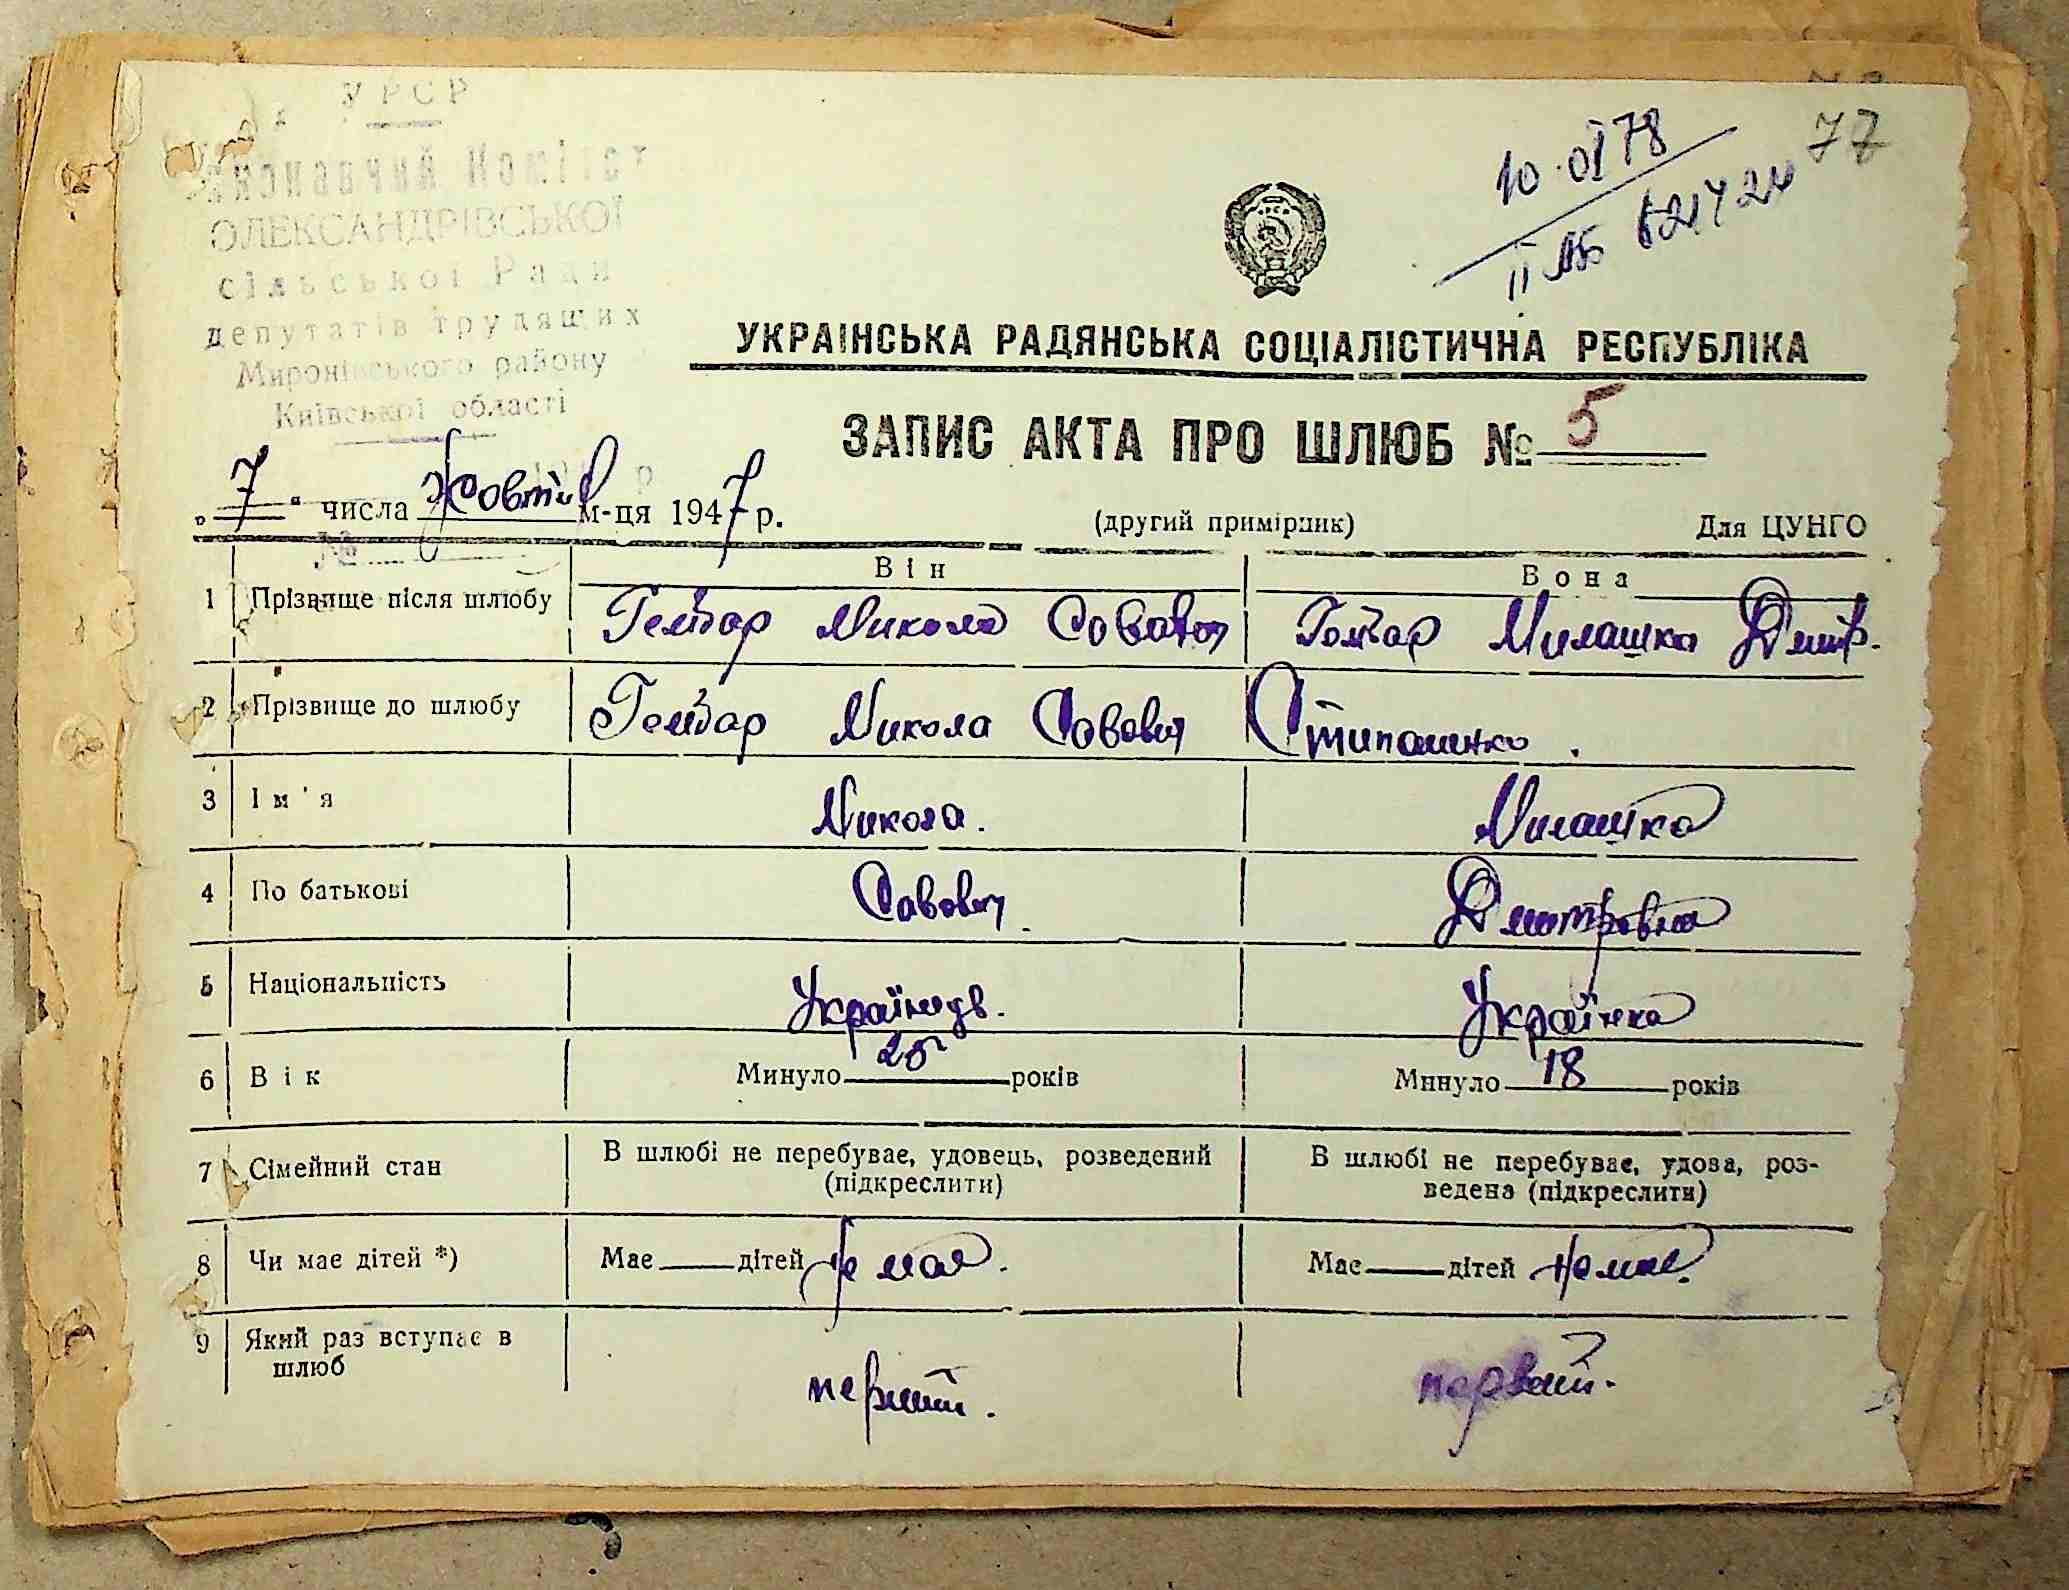 УРСР
Виконавчий Комітет
ОЛЕКСАНДРІВСЬКОЇ
сільської Ради
депутатів трудящих
Миронівського району
Київської області
77
10.01 78
II
УКРАЇНСЬКА РАДЯНСЬКА СОЦІАЛІСТИЧНА РЕСПУБЛІКА
ЗАПИС АКТА ПРО ШЛЮБ № 5
„7“ числа Жовтня м-ця 1947 р. (другий примірник) Для ЦУНГО
Він Вона
1 Прізвище після шлюбу Микола Савович Милашка Дмитр.
2 Прізвище до шлюбу Микола Савович
3 Ім'я Микола. Милашка
4 По батькові Савович Дмитровна
5 Національність Українець. Українка
6 Вік Минуло 25 років Минуло 18 років
7 Сімейний стан В шлюбі не перебуває, удовець, розведений (підкреслити) В шлюбі не перебуває, удова, роз-
ведена (підкреслити)
8 Чи має дітей *) Має дітей Не має. Має дітей Не має.
9 Який раз вступає в
шлюб перший. первий.